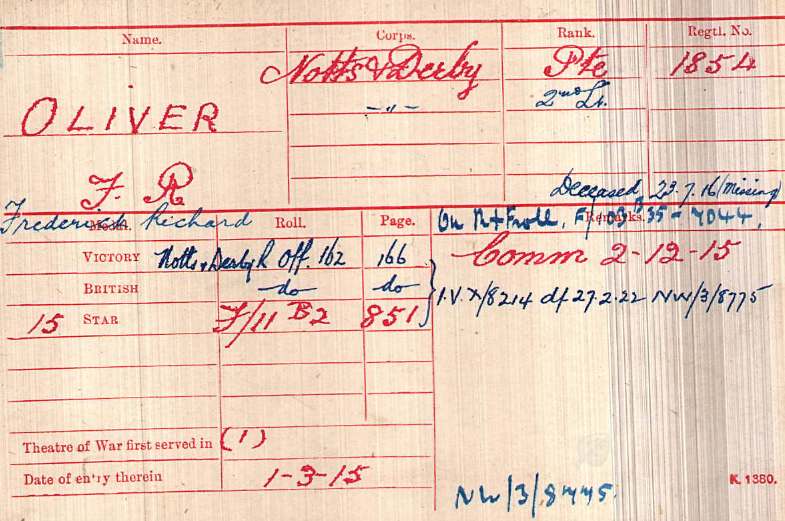 Name. Corps. Rank. Regtl. No.
Notts & Derby Pte 1854
OLIVER —"— 2nd Lt.
F. R
Deceased 23.7.16 (Missing)
Frederick Richard
Medal. Roll. Page. Remarks.
On R & F roll, F/103 B 35 - 7044.
VICTORY Notts & Derby R Off. 162 166 Comm 2-12-15
BRITISH do do
I.V.X/8214 df 27.2.22 NW/3/8775
15 STAR F/11 B2 851
Theatre of War first served in (1)
Date of entry therein 1-3-15
NW/3/8775.
K. 1380.